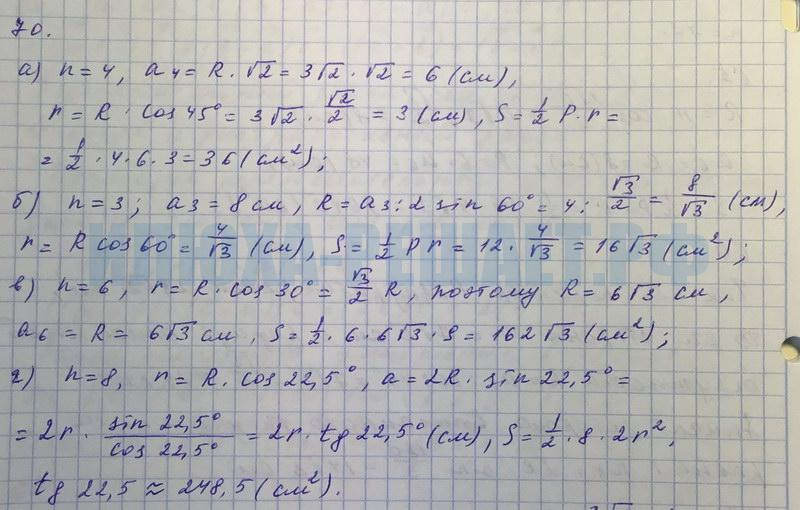 70.
а) n = 4, a₄ = R · √2 = 3√2 · √2 = 6 (см),
r = R · cos 45° = 3√2 · √2/2 = 3 (см), S = 1/2 P · r =
= 1/2 · 4 · 6 · 3 = 36 (см²);
б) n = 3; a₃ = 8 см, R = a₃ : 2 sin 60° = 4 : √3/2 = 8/√3 (см),
r = R cos 60° = 4/√3 (см), S = 1/2 P r = 12 · 4/√3 = 16√3 (см²);
в) n = 6, r = R · cos 30° = √3/2 R, поэтому R = 6√3 см,
a₆ = R = 6√3 см, S = 1/2 · 6 · 6√3 · 9 = 162√3 (см²);
г) n = 8, r = R · cos 22,5°, a = 2R · sin 22,5° =
= 2r · sin 22,5°/cos 22,5° = 2r · tg 22,5° (см), S = 1/2 · 8 · 2r²,
tg 22,5 ≈ 248,5 (см²).